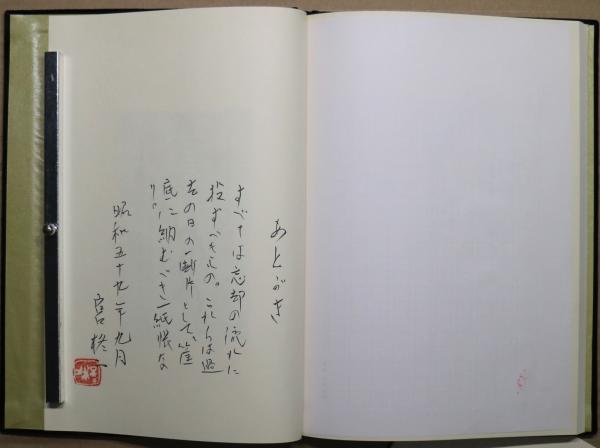 あとがき
すべては忘却の流れに
投ずべきもの。これらは過
去の日の一断片として、筐
底に納むべき一紙帳な
り。
昭和五十九年九月
宮柊二